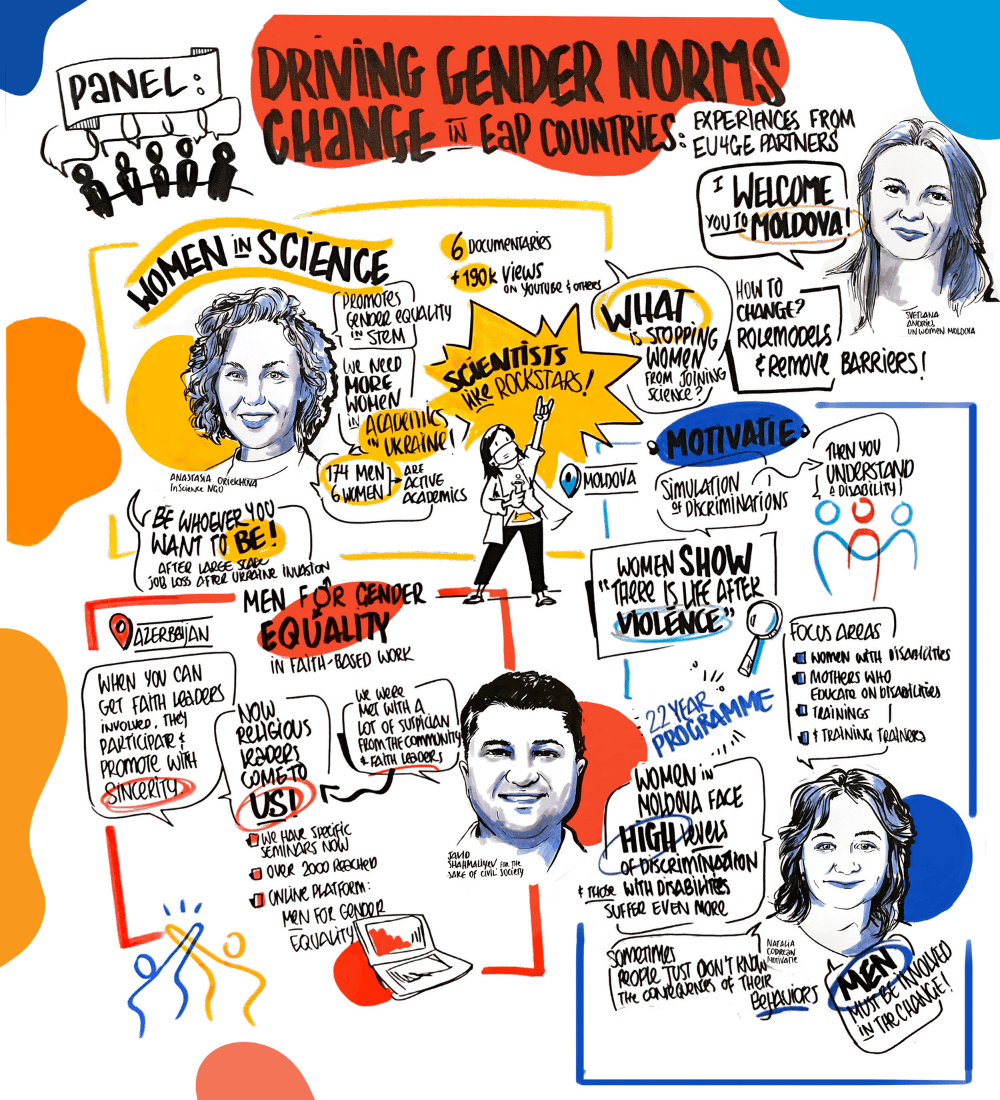 PANEL:
DRIVING GENDER NORMS
CHANGE IN EaP COUNTRIES:
EXPERIENCES FROM
EU4GE PARTNERS
I WELCOME
YOU TO MOLDOVA!
SVETLANA
ANDRIEȘ
UN WOMEN MOLDOVA
HOW TO
CHANGE?
ROLEMODELS
& REMOVE BARRIERS!
WOMEN IN SCIENCE
6 DOCUMENTARIES
+190K VIEWS
ON YOUTUBE & OTHERS
PROMOTES
GENDER EQUALITY
IN STEM
WE NEED
MORE
WOMEN
IN ACADEMICS
IN UKRAINE!
174 MEN
6 WOMEN
ARE
ACTIVE
ACADEMICS
SCIENTISTS
like ROCKSTARS!
WHAT
IS STOPPING
WOMEN
FROM JOINING
SCIENCE?
ANASTASIA ORIEKHOVA
InScience NGO
BE WHOEVER YOU
WANT TO BE!
AFTER LARGE SCALE
JOB LOSS AFTER UKRAINE INVASION
MOLDOVA
MOTIVATIE
SIMULATION
OF DISCRIMINATIONS
THEN YOU
UNDERSTAND
A DISABILITY
WOMEN SHOW
"THERE IS LIFE AFTER
VIOLENCE"
FOCUS AREAS
WOMEN WITH DISABILITIES
MOTHERS WHO
EDUCATE ON DISABILITIES
TRAININGS
& TRAINING TRAINERS
22 YEAR
PROGRAMME
WOMEN IN
MOLDOVA FACE
HIGH levels
OF DISCRIMINATION
& THOSE WITH DISABILITIES
SUFFER EVEN MORE
SOMETIMES
PEOPLE JUST DON'T KNOW
THE CONSEQUENCES OF THEIR
BEHAVIORS
NATALIA
CODREAN
MOTIVATIE
MEN
MUST BE INVOLVED
IN THE CHANGE!
MEN FOR GENDER
EQUALITY
IN FAITH-BASED WORK
AZERBAIJAN
WHEN YOU CAN
GET FAITH LEADERS
INVOLVED, THEY
PARTICIPATE &
PROMOTE WITH
SINCERITY
NOW
RELIGIOUS
LEADERS
COME TO
US!
WE WERE
MET WITH A
LOT OF SUSPICIAN
FROM THE COMMUNITY
& FAITH LEADERS
WE HAVE SPECIFIC
SEMINARS NOW
OVER 2000 REACHED
ONLINE PLATFORM:
MEN FOR GENDER
EQUALITY
JAVID
SHAHMALIYEV FOR THE
SAKE OF CIVIL SOCIETY